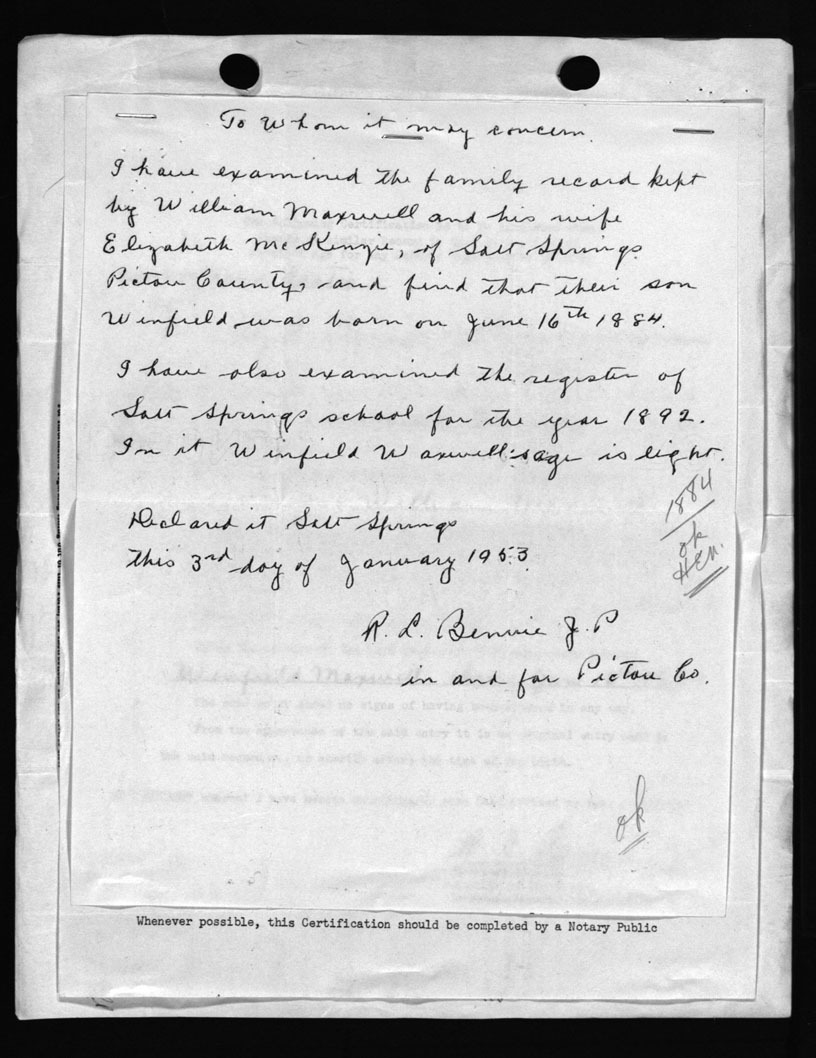 To Whom it may concern.
I have examined the family record kept
by William Maxwell and his wife
Elizabeth McKenzie, of Salt Springs
Pictou County, and find that their son
Winfield was born on June 16th 1884.
I have also examined the register of
Salt Springs school for the year 1892.
In it Winfield Maxwell's age is eight.
1884
ok
Declared at Salt Springs
this 3rd day of January 1953
R. L. Bennie J. P
in and for Pictou Co.
Winfield Maxwell
ok
Whenever possible, this Certification should be completed by a Notary Public